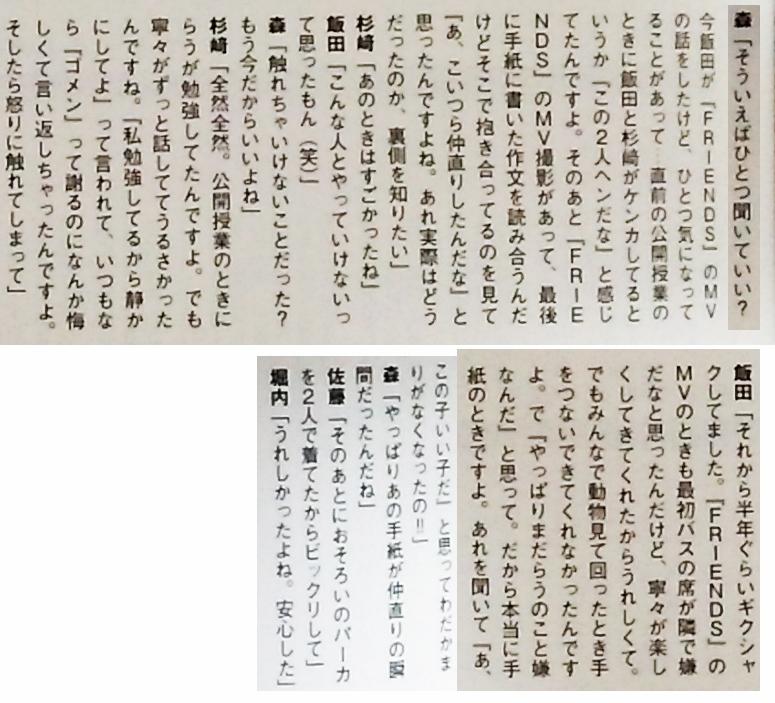 森「そういえばひとつ聞いていい?
今飯田が『FRIENDS』のMV
の話をしたけど、ひとつ気になって
ることがあって…直前の公開授業の
ときに飯田と杉﨑がケンカしてると
いうか『この2人ヘンだな』と感じ
てたんですよ。そのあと『FRIE
NDS』のMV撮影があって、最後
に手紙に書いた作文を読み合うんだ
けどそこで抱き合ってるのを見て
『あ、こいつら仲直りしたんだな』と
思ったんですよね。あれ実際はどう
だったのか、裏側を知りたい」
杉﨑「あのときはすごかったね」
飯田「こんな人とやっていけないっ
て思ったもん(笑)」
森「触れちゃいけないことだった?
もう今だからいいよね」
杉﨑「全然全然。公開授業のときに
らうが勉強してたんですよ。でも
寧々がずっと話しててうるさかった
んですね。『私勉強してるから静か
にしてよ』って言われて、いつもな
ら『ゴメン』って謝るのになんか悔
しくて言い返しちゃったんですよ。
そしたら怒りに触れてしまって」
飯田「それから半年ぐらいギクシャ
クしてました。『FRIENDS』の
MVのときも最初バスの席が隣で嫌
だなと思ったんだけど、寧々が楽し
くしてきてくれたからうれしくて。
でもみんなで動物見て回ったとき手
をつないできてくれなかったんです
よ。で『やっぱりまだらうのこと嫌
なんだ』と思って。だから本当に手
紙のときですよ。あれを聞いて『あ、
この子いい子だ』と思ってわだかま
りがなくなったの!!」
森「やっぱりあの手紙が仲直りの瞬
間だったんだね」
佐藤「そのあとにおそろいのパーカ
を2人で着てたからビックリして」
堀内「うれしかったよね。安心した」